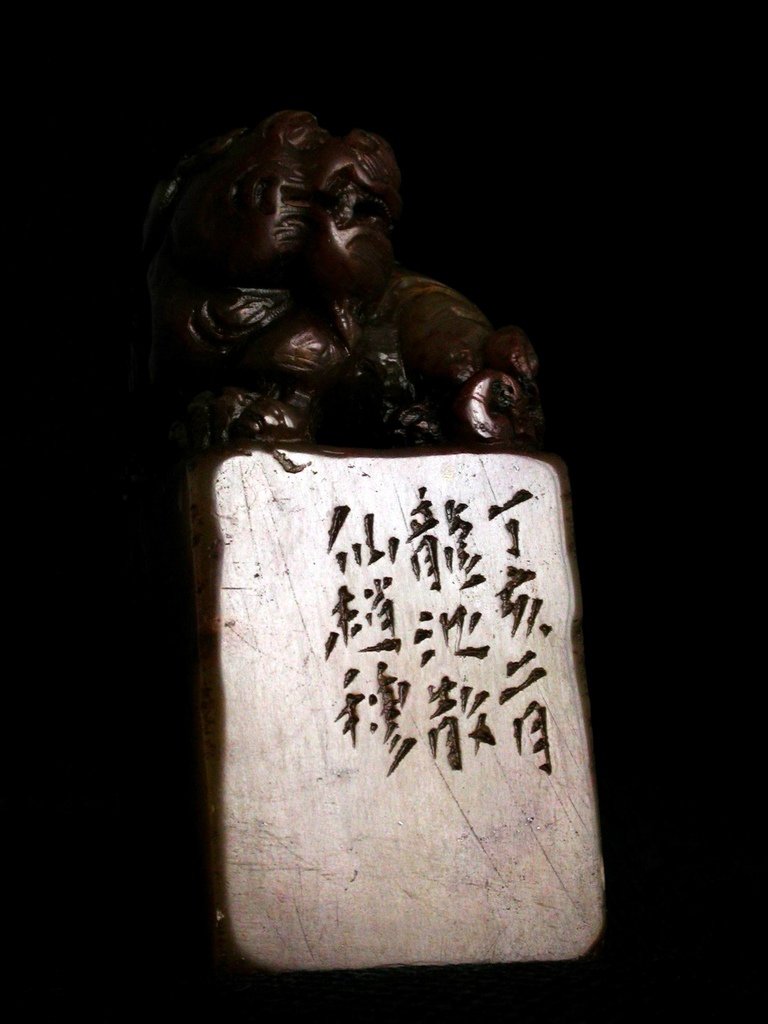 丁亥二月
龍池散
仙趙穆